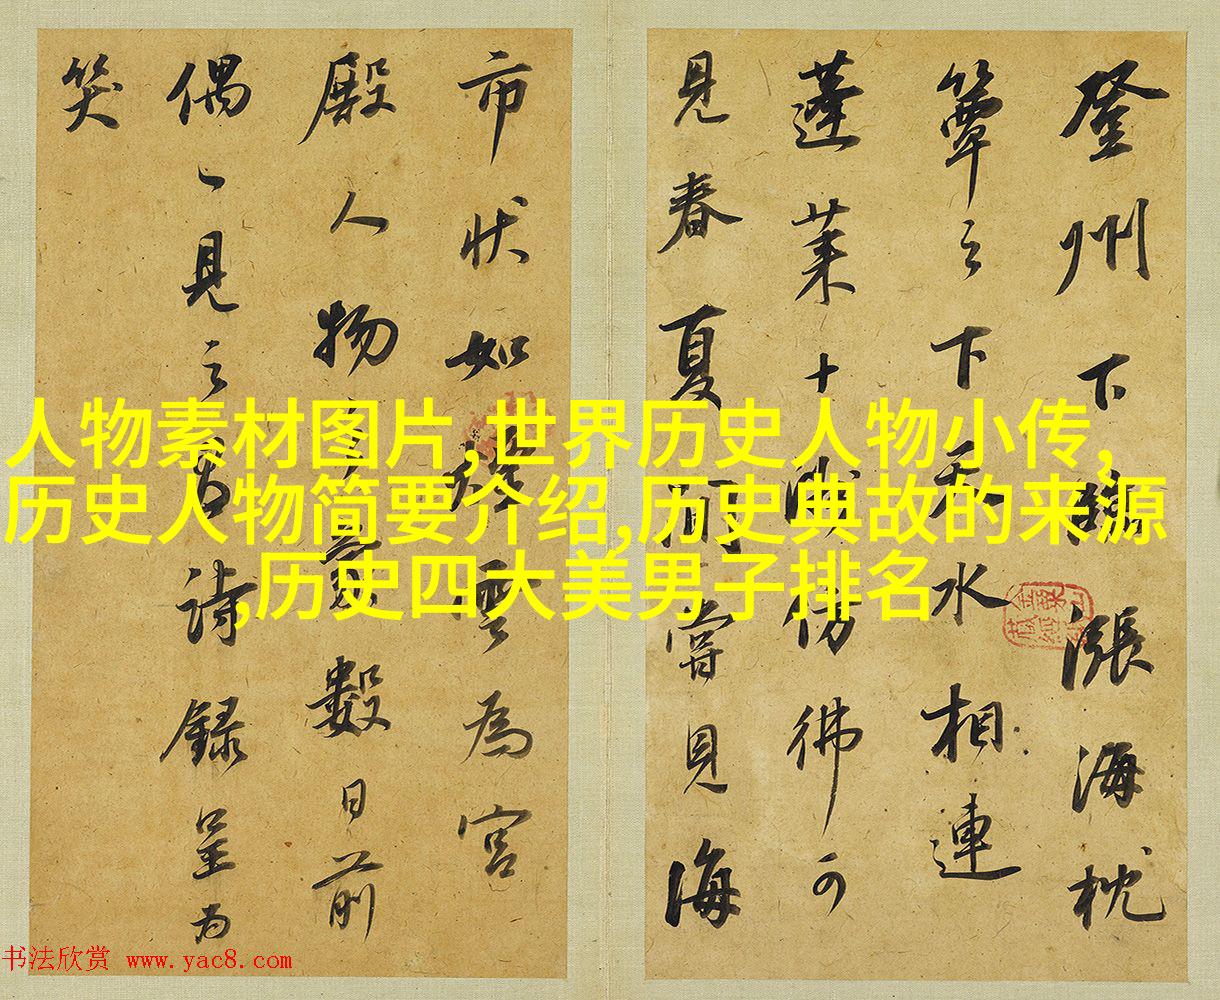 登州下臨漲海枕
簟之下天水相連
蓬萊十洲仿佛可
見春夏間嘗見海
市狀如煙雲為宮
殿人物之象數日前
偶一見之有詩錄呈為
笑
人物素材图片,世界历史人物小传,
历史人物简要介绍,历史典故的来源
,历史四大美男子排名
书法欣赏 www.yac8.com